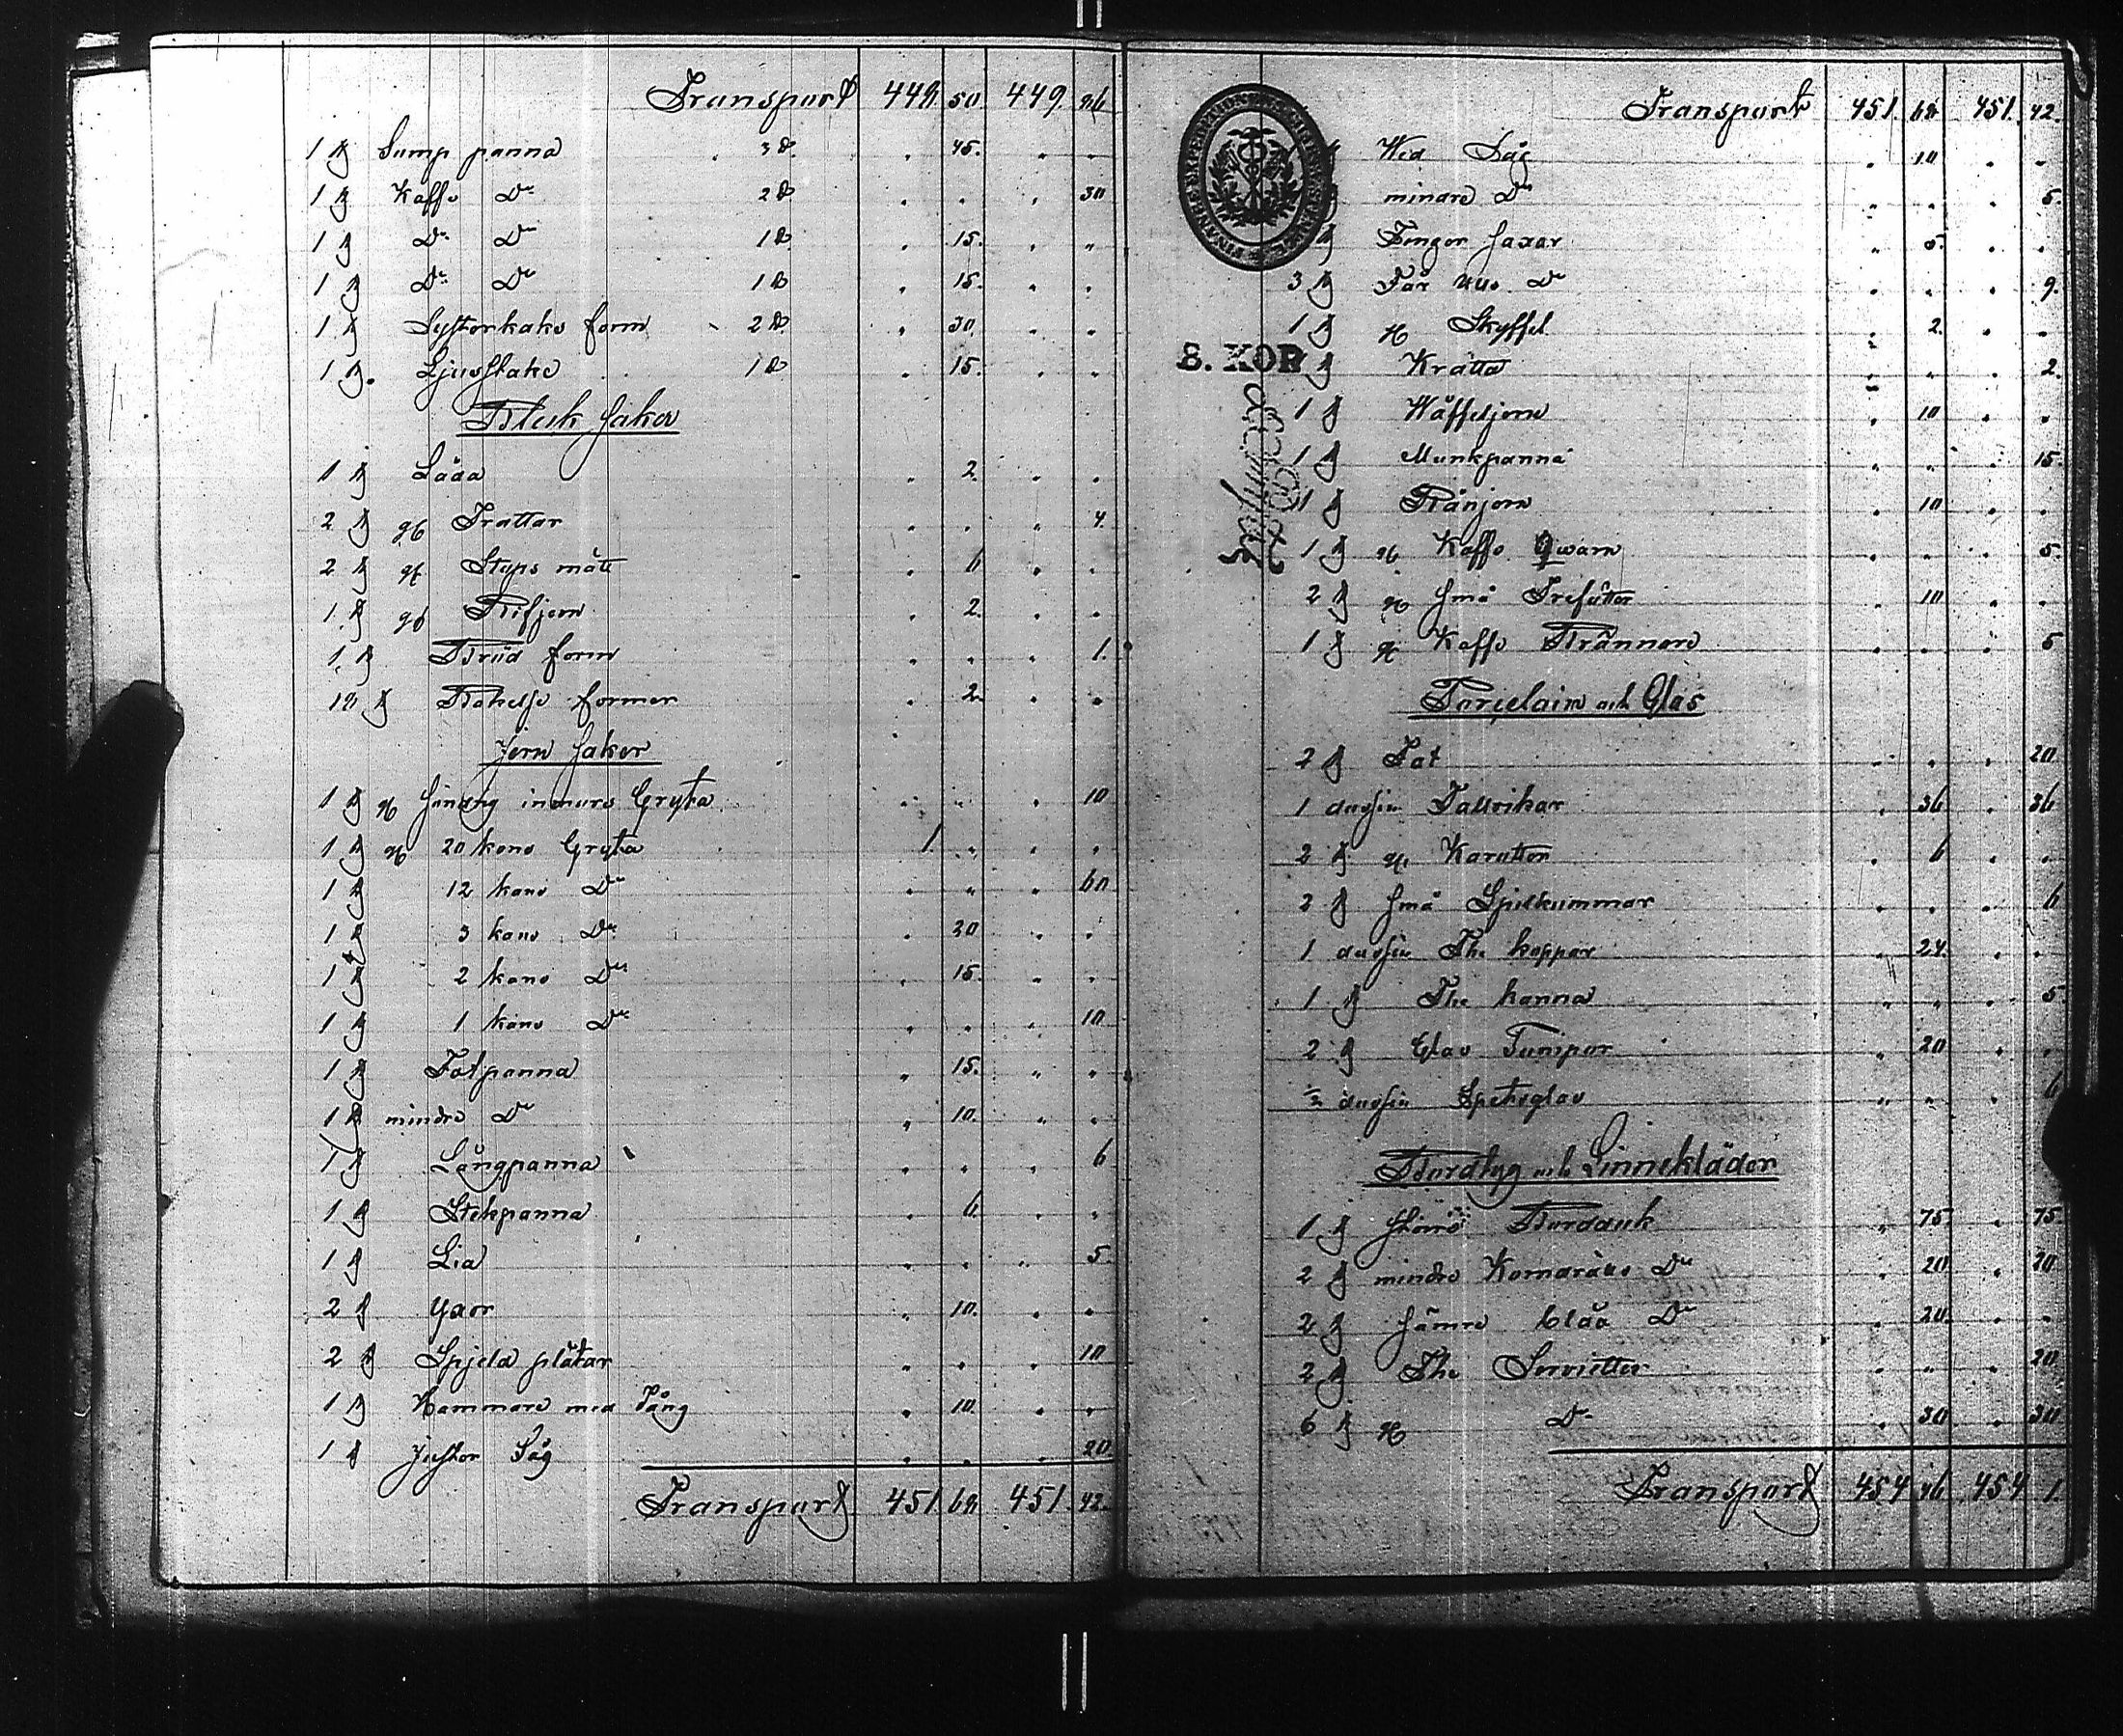 Transport 449. 50 449 96
1 st Sump panna 3 ℔. „ 45. „ „
1 st Kaffe Do 2 ℔ „ „ „ 30
1 st Do Do 1 ℔ „ 15. „ „
1 st Do Do 1 ℔ „ 15. „ „
1 st Systerkaks form 2 ℔ „ 30. „ „
1 st Ljusstake 1 ℔ „ 15. „ „
Bleck saker
1 st Låda „ 2. „ „
2 st gl Trattar „ „ „ 4.
2 st gl Stops mått „ 6 „ „
1 st gl Rifjern „ 2. „ „
1 st Bröd form „ „ „ 1.
12 st Bakelse former „ 2 „ „
Jern saker
1 st gl söndrig inmurd Gryta „ „ „ 10
1 st gl 20 kans Gryta 1. „ „ „
1 st 12 kans Do „ „ „ 60
1 st 3 kans Do „ 20 „ „
1 st 2 kans Do „ 15. „ „
1 st 1 kans Do „ „ „ 10
1 st Fotpanna „ 15. „ „
1 st mindre Do „ 10. „ „
1 st Långpanna „ „ „ 6
1 st Stekpanna „ 6. „ „
1 st Lia „ „ „ 5
2 st Yxor „ 10. „ „
2 st Spjeld plåtar „ „ „ 10
1 st Hammare med Tång „ 10. „ „
1 st Juster Såg „ „ „ 20
Transport 451. 68 451. 42.
Transport 451. 68 451. 42.
st Wed Såg „ 10 „ „
minare Do „ „ „ 5.
st Finger saxar „ 5. „ „
3 st Får ulls Do „ „ „ 9.
1 st gl Skyffel „ 2. „ „
8. KOP
st Krätta „ „ „ 2.
1 st Wåffeljern „ 10 „ „
1 st Munkpanna „ „ „ 15.
1 st Rånjern „ 10 „ „
1 st gl Kaffe Qwarn „ „ „ 5.
2 st gl små Trefötter „ 10 „ „
1 st gl Kaffe Brännare „ „ „ 5
Porcelain och Glas
2 st Fat „ „ „ 20
1 dussin Tallrikar „ 36 „ 36
2 st gl Karotter „ 6 „ „
2 st små Spilkummar „ „ „ 6
1 dussin The koppar „ 24. „ „
1 st The kanna „ „ „ 5
2 st Glas Tumipor „ 20 „ „
½ dussin Spetsglas „ „ „ 6
Bordtyg och Linnekläder
1 st större Bordduk „ 75. „ 75.
2 st mindre Kornaräns Do „ 20 „ 20
2 st sämre blåa Do „ 20. „ „
2 st The Servietter „ „ „ 20
6 st gl Do „ 30 „ 30
Transport 454 46 454 1.